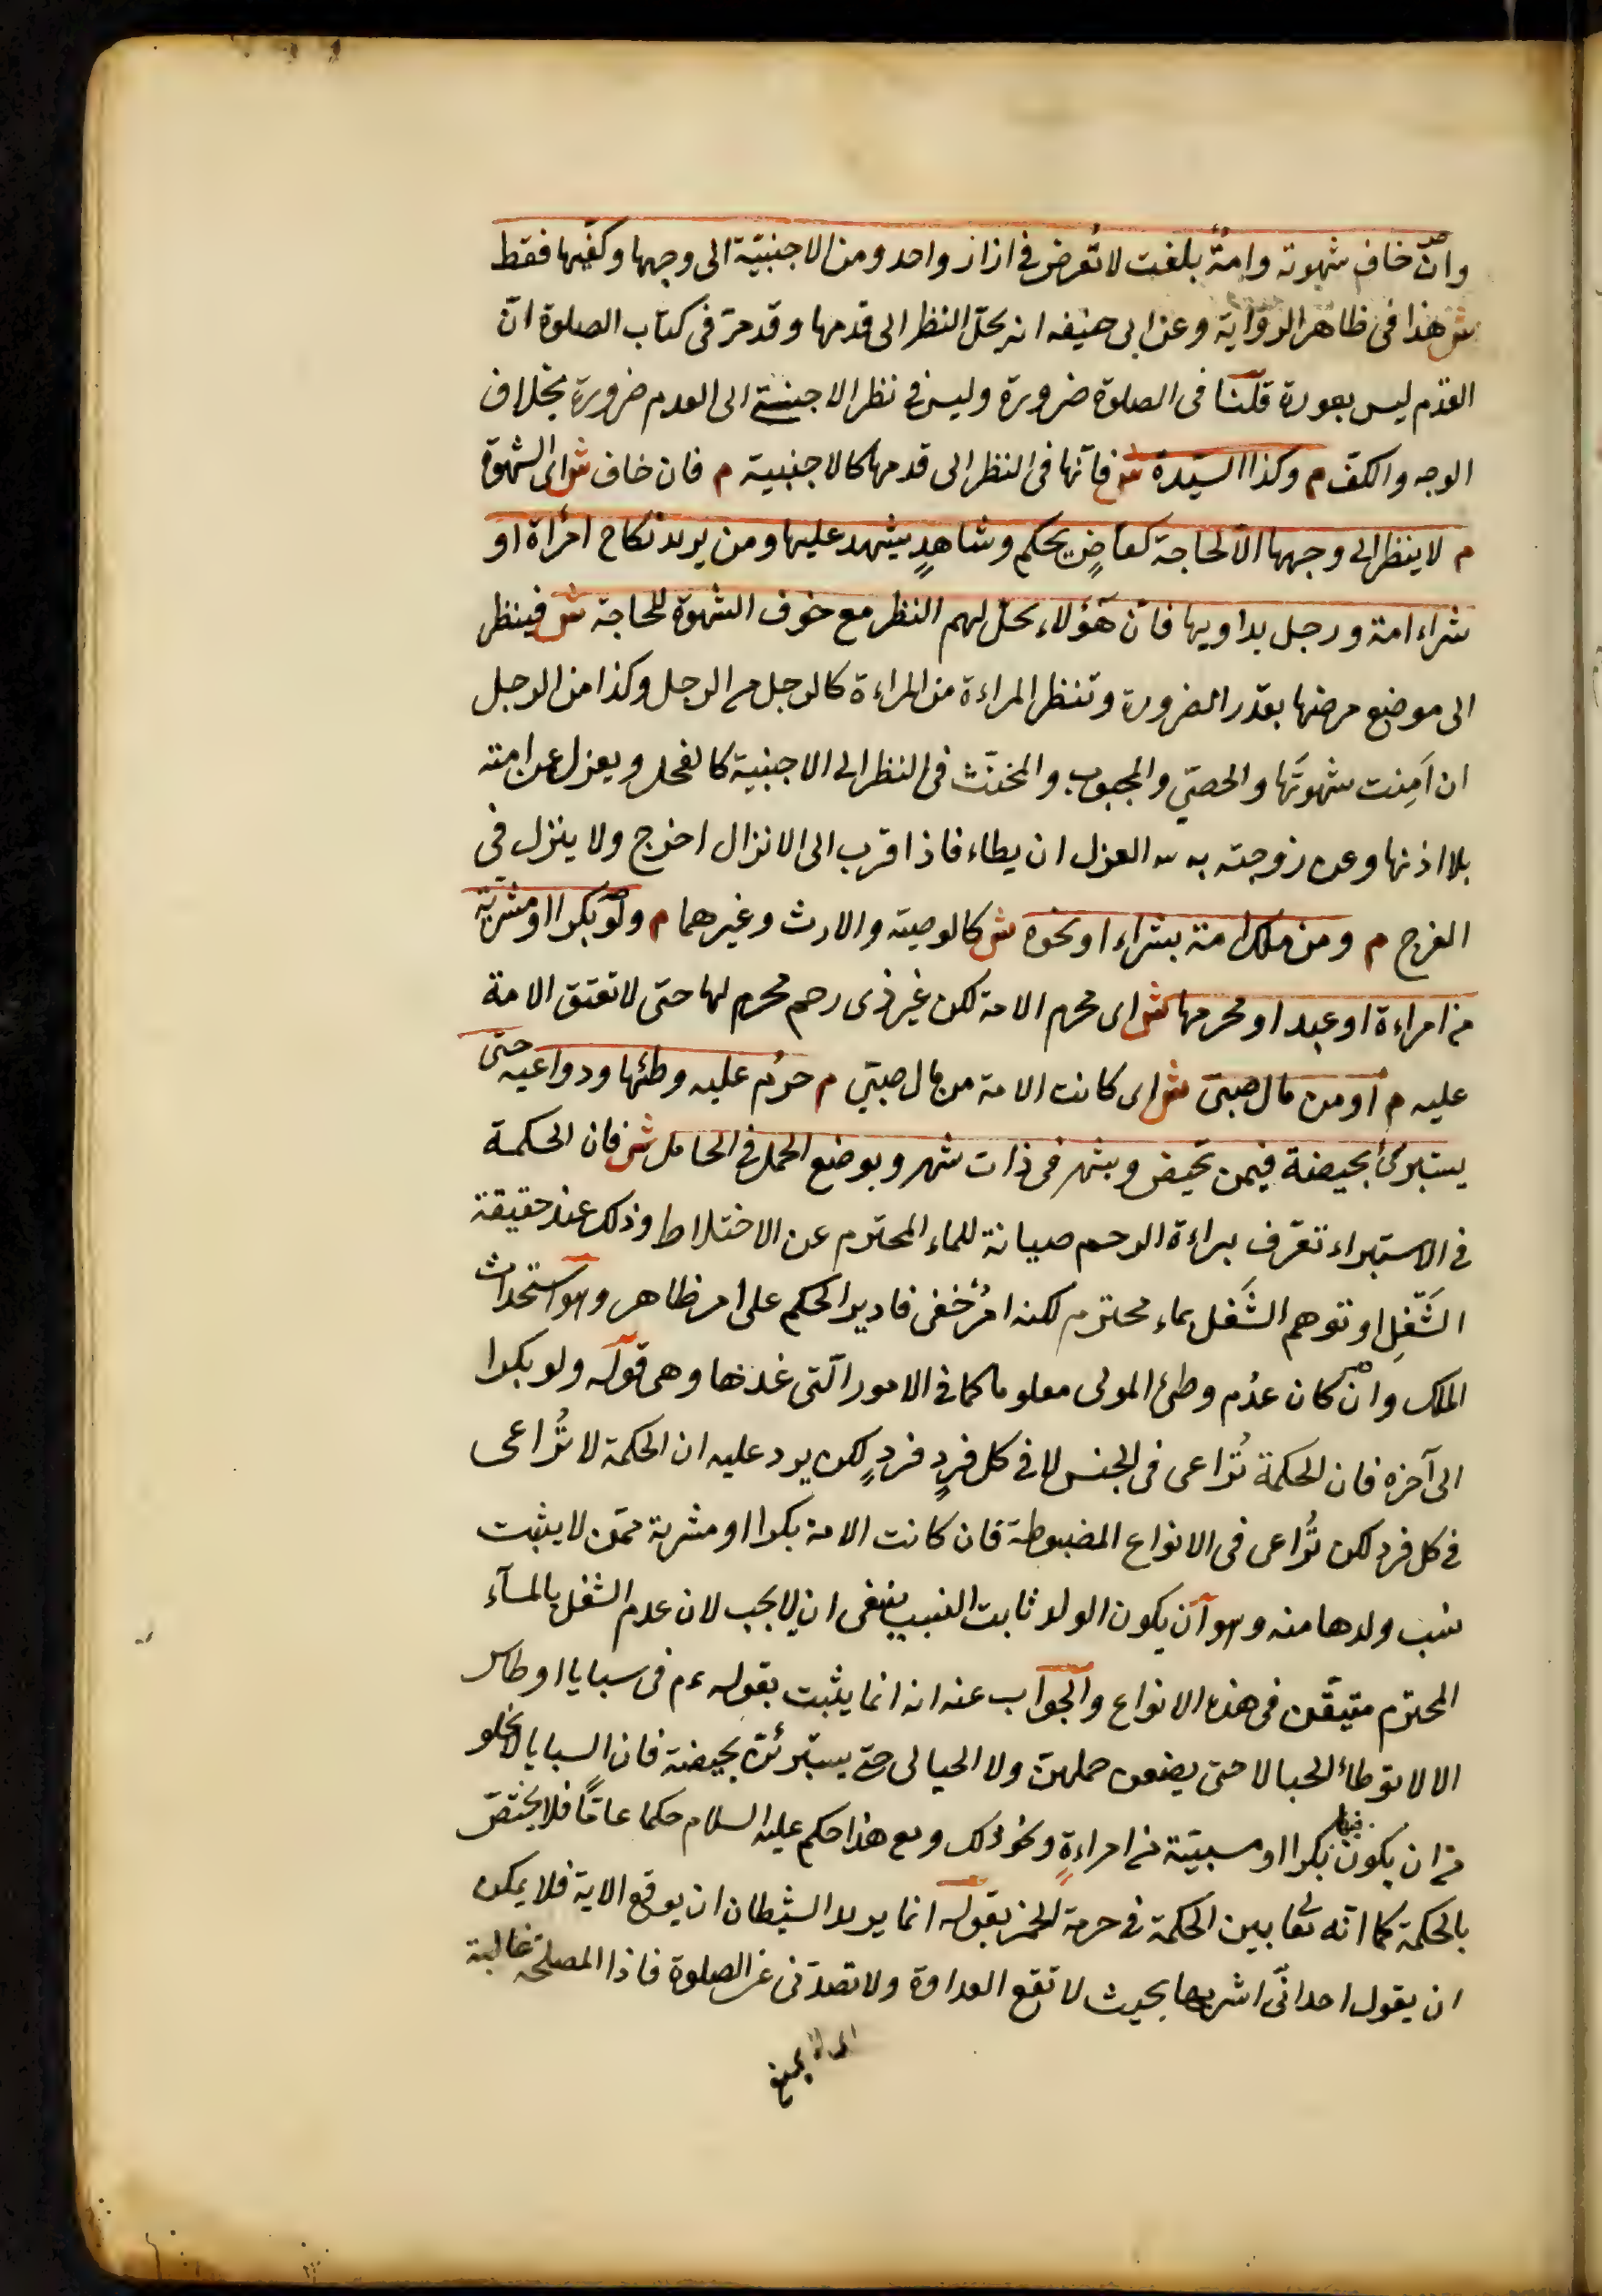 وان خاف شهوته وامةٌ بلغت لا تُعرض في ازار واحد ومن الاجنبيّة الى وجهها وكفيها فقط
ش هذا فى ظاهر الرواية وعن ابى حنيفه انه يحلّ النظر الى قدمها وقد مرّ فى كتاب الصلوة انّ
القدم ليس بعورة قلنا فى الصلوة ضرورة وليس فى نظر الاجنبىّ الى القدم ضرورة بخلاف
الوجه والكف م وكذا السيّدة ش فانّها فى النظر الى قدمها كالاجنبية م فان خاف ش اى الشهوة
م لا ينظر الى وجهها الّا لحاجة كقاضٍ يحكم وشاهدٍ يشهد عليها ومن يريد نكاح امرأة او
شراء امة ورجل يداويها فانّ هؤلاء يحلّ لهم النظر مع خوف الشهوة للحاجة ش فينظر
الى موضع مرضها بقدر الضرورة وتنظر المراءة من المراءة كالرجل من الرجل وكذا من الرجل
ان اَمِنت شهوتَها والخصىّ والمجبوب والمخنّث فى النظر الى الاجنبية كالفحل ويعزل عن امته
بلا اذنها وعن زوجته به ش العزل ان يطاء فاذا قرب الى الانزال اخرج ولا ينزل فى
الفرج م ومن ملك امة بشراء او نحوه ش كالوصية والارث وغيرهما م ولو بكرا او مشرية
من امراءة او عبد او محرمها ش اى محرم الامة لكن غير ذى رحم محرم لها حتى لا تعتق الامة
عليه م او من مال صبىّ ش اى كانت الامة من مال صبىّ م حرُم عليه وطئها ودواعيه حتّى
يستبرئ بحيضة فيمن تحيض وبشهر فى ذات شهر وبوضع الحمل فى الحامل ش فان الحكمة
فى الاستبراء تعرّف براءة الرحم صيانة للماء المحترم عن الاختلاط وذلك عند حقيقة
الشَّغِل او توهم الشَغل بماء محترم لكنه امرٌ خفى فادير الحكم على امر ظاهر وهو استحداث
الملك وان كان عدُم وطئ المولى معلوما كما فى الامور الّتى عدها وهى قوله ولو بكرا
الى آخره فان الحكمة تُراعى فى الجنس لا فى كل فردٍ فردٍ لكن يرد عليه ان الحكمة لا تُراعى
فى كل فرد لكن تُراعى فى الانواع المضبوطة فان كانت الامة بكرا او مشرية ممّن لا يثبت
نسب ولدها منه وهو ان يكون الولد ثابت النسب ينبغى ان لا يجب لان عدم الشغل بالمآء
المحترم متيقّن فى هذه الانواع والجواب عنه انه انما يثبت بقوله عم فى سبايا اوطاس
الا لا توطاء الحبالا حتى يضعن حملهنّ ولا الحيالى حتى يستبرئن بحيضة فان السبايا لا يخلو
من ان يكون فيها بكرا او مسبيّة من امراءةٍ ونحو ذلك ومع هذا حكم عليه السلام حكما عامّاً فلا يختصّ
بالحكمة كما انّه تعا بين الحكمة فى حرمة الخمر بقوله انما يريد الشيطان ان يوقع الاية فلا يمكن
ان يقول احد انّى اشربها بحيث لا تقع العداوة ولا تصدّنى عن الصلوة فاذا المصلحة غالبة